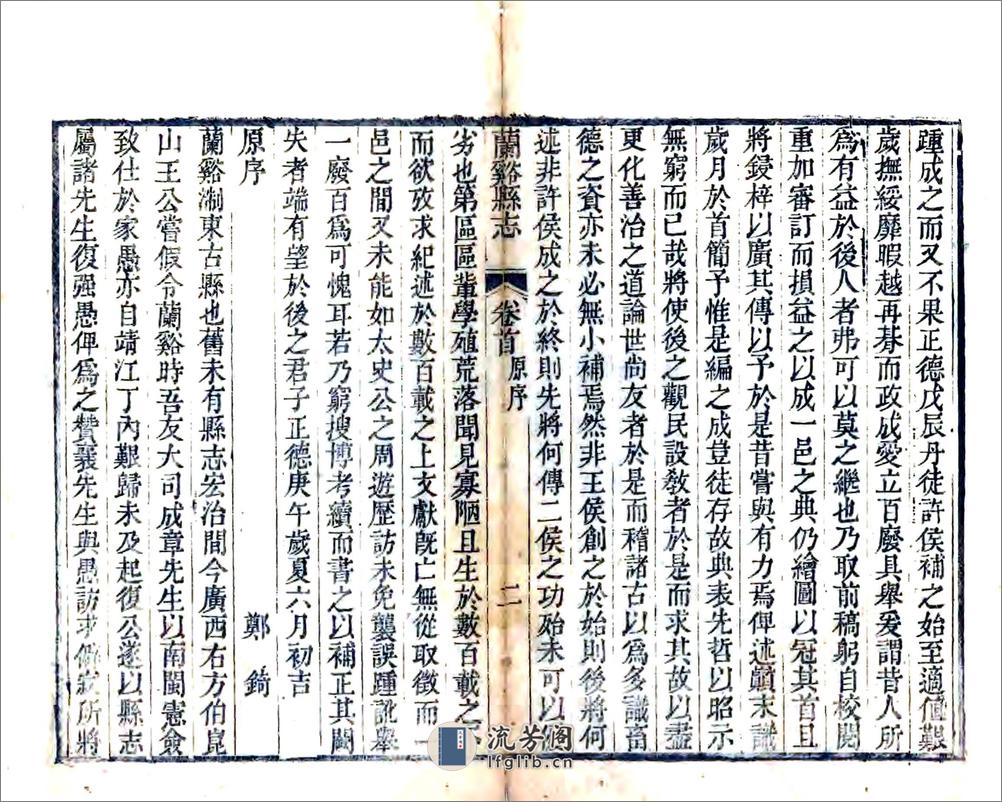 踵成之而又不果正德戊辰丹徒許侯補之始至適值艱
歲撫綏靡暇越再朞而政成爰立百廢具舉爰謂昔人所
爲有益於後人者弗可以莫之繼也乃取前稿躬自校閱
重加審訂而損益之以成一邑之典仍繪圖以冠其首且
將鋟梓以廣其傳以予於是昔嘗與有力焉俾述顚末識
歲月於首簡予惟是編之成豈徒存故典表先哲以昭示
無窮而已哉將使後之觀民設敎者於是而求其故以盡
更化善治之道論世尚友者於是而稽諸古以爲多識畜
德之資亦未必無小補焉然非王侯創之於始則後將何
述非許侯成之於終則先將何傳二侯之功殆未可以優
蘭谿縣志 卷首 原序 二
劣也第區區輩學殖荒落聞見寡陋且生於數百載之下
而欲攷求紀述於數百載之上文獻旣亡無從取徵而一
邑之間又未能如太史公之周遊歷訪未免襲誤踵訛舉
一廢百爲可愧耳若乃窮搜博考續而書之以補正其闕
失者端有望於後之君子正德庚午歲夏六月初吉
原序 鄭錡
蘭谿淛東古縣也舊未有縣志宏治間今廣西右方伯崑
山王公嘗假令蘭谿時吾友大司成章先生以南閩憲僉
致仕於家愚亦自靖江丁內艱歸未及起復公遂以縣志
屬諸先生復强愚俾爲之贊襄先生與愚訪求僻寂所將
流芳阁
lfglib.cn